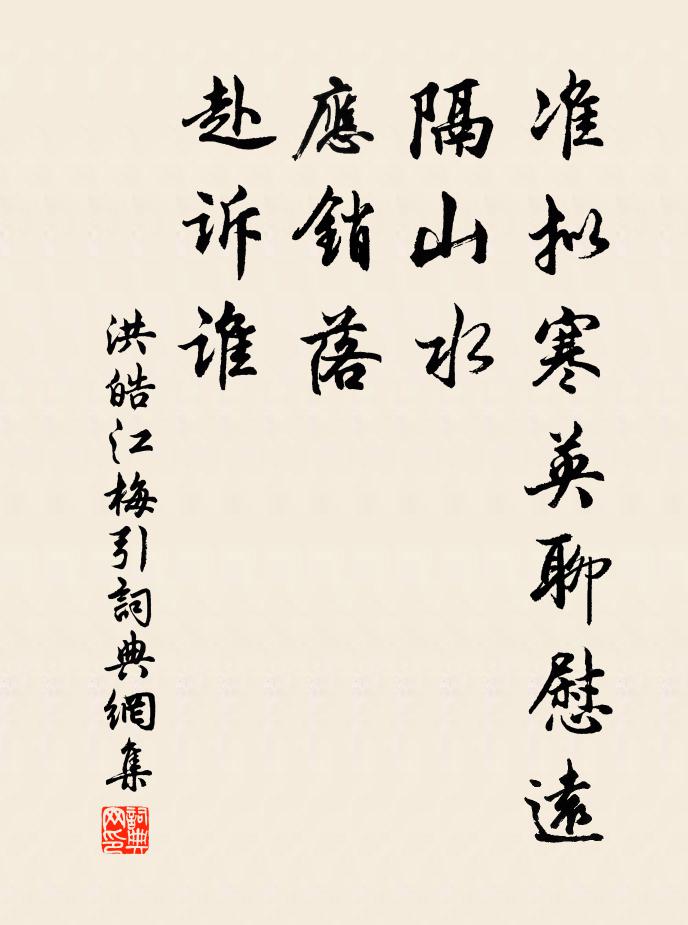 准拟寒英聊慰遠
隔山水
應銷落
赴诉谁
洪皓江梅引詞典網集
詞典網印